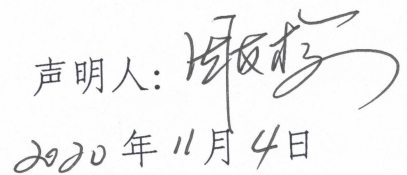 声明人：
2020年11月4日